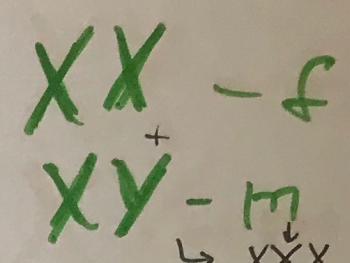 XX - f
+
XY - m
↓
↳ XXX